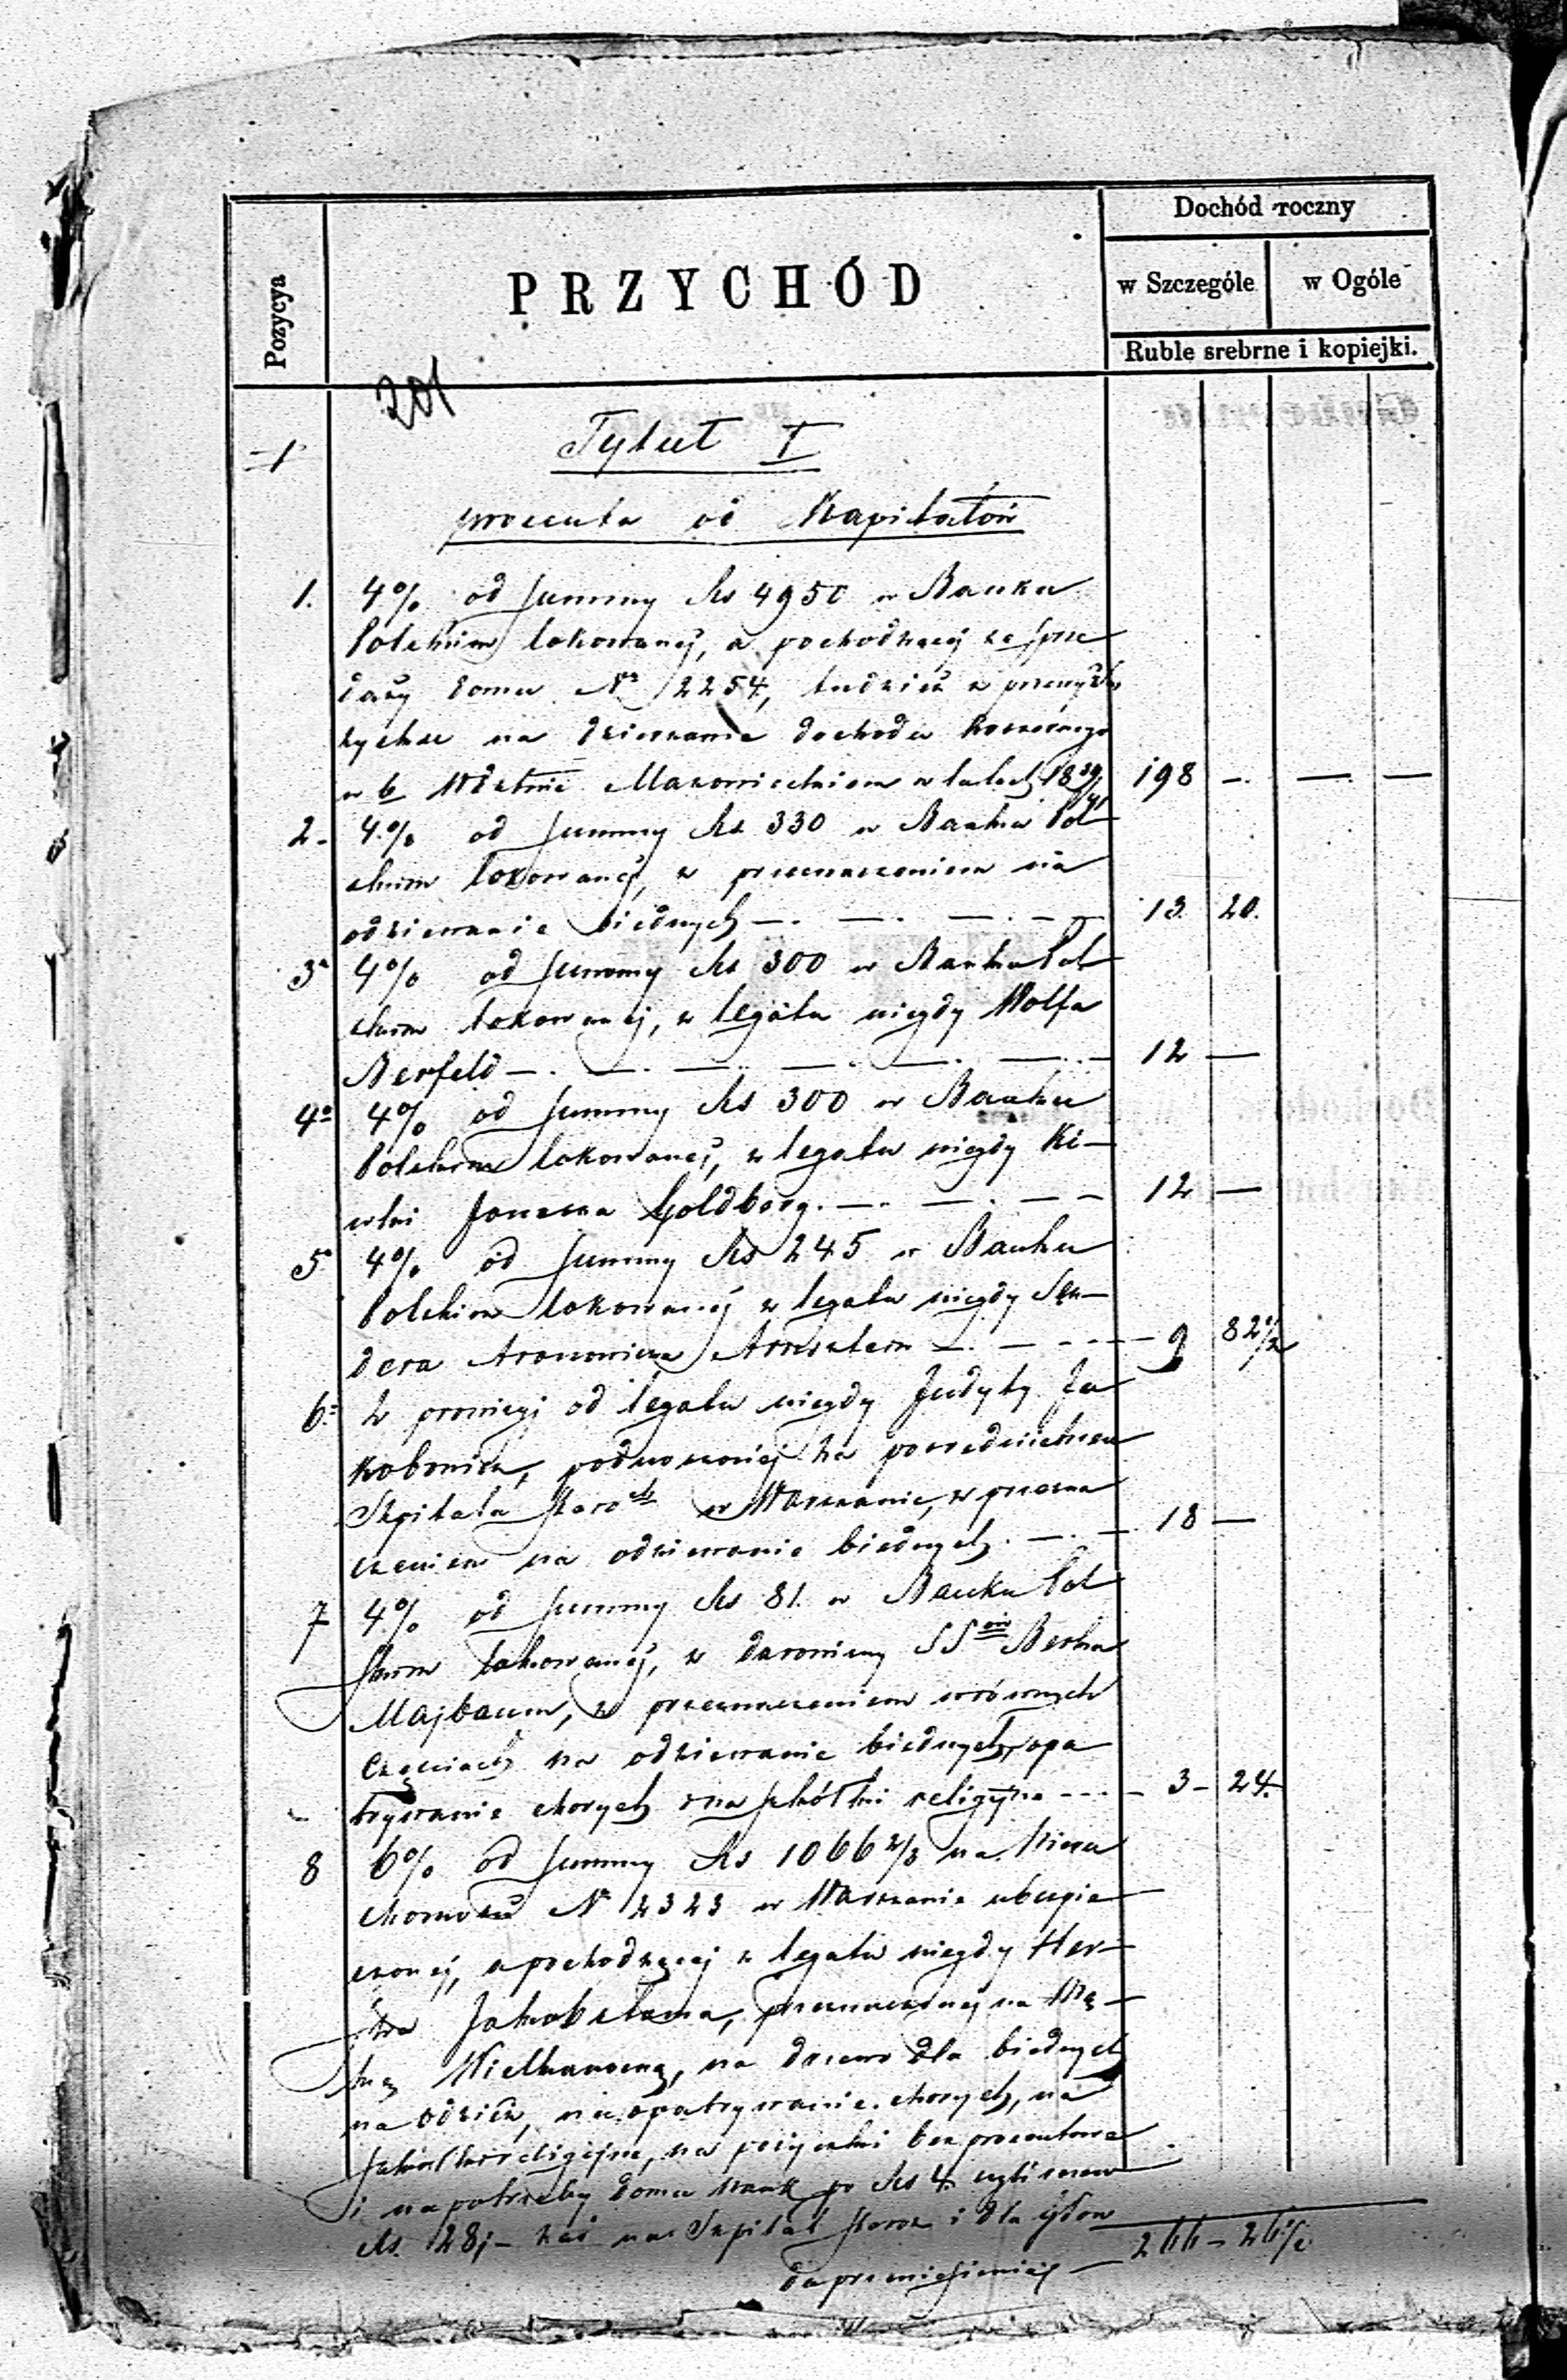 Pozycya
PRZYCHÓD
Dochód roczny
w Szczególe w Ogóle
Ruble srebrne i kopiejki.
201
Tytuł I
procenta od Kapitałów
1. 4% od Summy Rs 4950 w Banku
Polskim lokowanéj, a pochodzącéj ze sprze
daży domu Nr 2254, tudzież z
na dzierżawie dochodu koszernego
w b. Wdztwie Mazowieckiem w latach 1839/41 198 — — —
2. 4% od Summy Rs 330 w Banku Pol
skim lokowanéj, z przeznaczeniem na
odziewanie biednych — — — — 13. 20.
3. 4% od Summy Rs 300 w Banku Pol
skim lokowanéj, z legatu niegdy Wolfa
Berfeld — — — — — 12 —
4. 4% od Summy Rs 300 w Banku
Polskim lokowanéj, z legatu niegdy Ki—
wki Goldberg. — — — — 12 —
5. 4% od Summy Rs 245 w Banku
Polskim lokowanéj z legatu niegdy Sen—
dera Aronowicza — — — 9 82 1/2
6. Z prowizyi od legatu niegdy Judyty Ja
kobowicz, podnoszonéj za pośrednictwem
Szpitala Staroch w Warszawie, z przezna
czeniem na odziewanie biednych. — — 18 —
7 4% od Summy Rs 81. w Banku Pol
skim lokowanéj, z darowizny SSów Berka
Majbaum, z przeznaczeniem w równych
częściach na odziewanie biednych, opa
trywanie chorych i na szkółki religijne — — 3 — 24.
8 6% od Summy Rs 1066 2/3 na Nieru
chomości Nr 2323 w Warszawie ubezpie
czonéj, a pochodzącéj z legatu niegdy Her—
szka Jakobsohna, przeznaczonéj na Mą—
kę Wielkanocną, na drzewo dla biednych
na odzież, na opatrywanie chorych, na
szkółki religijne, na pożyczki bez procentowe
i na potrzeby domu nauk po Rs 4. czyli razem
Rs. 28; — zaś na Szpital Staroz i dla
266 — 26 1/2
do przeniesienia —